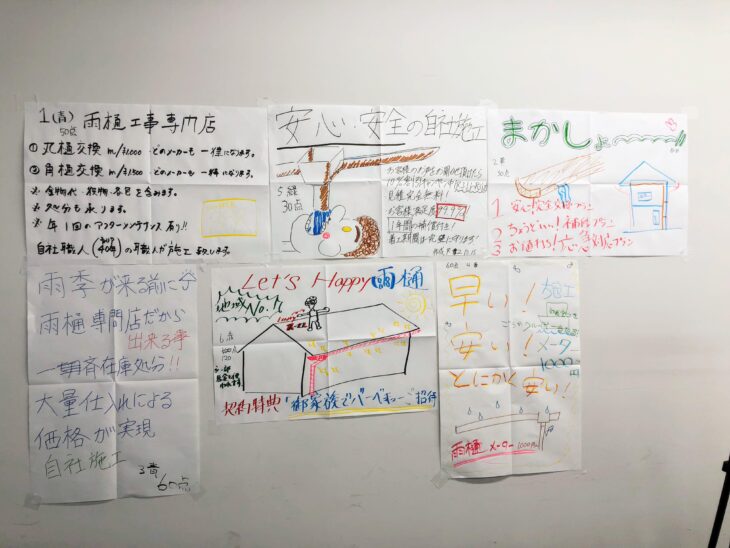 1(青)
50点
雨樋工事専門店
① 丸樋交換 m/¥1000 ・どのメーカーも一律になります。
② 角樋交換 m/¥1,500 ・どのメーカーも一律になります。
※ 金物代・役物・各色を含みます。
※ 処分も承ります。
※ 年1回のアフターメンテナンス有り!!
自社職人(キャリア40年)の職人が施工致します。
安心・安全の自社施工
5 経
30点
見積完全無料!
お客様満足度 99.9%
1年間の補償付き!
まかしょ
2番
30点
1 安心!安全交換プラン
2 ちょうどいい!補修プラン
3 お値打ち!応急対応プラン
雨季が来る前に今
雨樋専門店だから
出来る事
一期斉在庫処分!!
大量仕入れによる
価格が実現
自社施工
3番
60点
Let's Happy(雨)樋
地域No.1
6点
100点
120
契約特典「御家族でバーベキュー」ご招待
60点 4番
早い!
安い!
メータ
1000円
とにかく安い!
雨樋 メーター 1000円